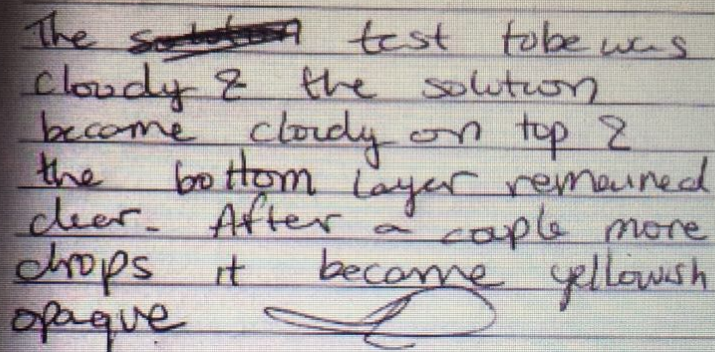 The solution test tube was
cloudy & the solution
became cloudy on top &
the bottom layer remained
clear. After a couple more
drops it became yellowish
opaque